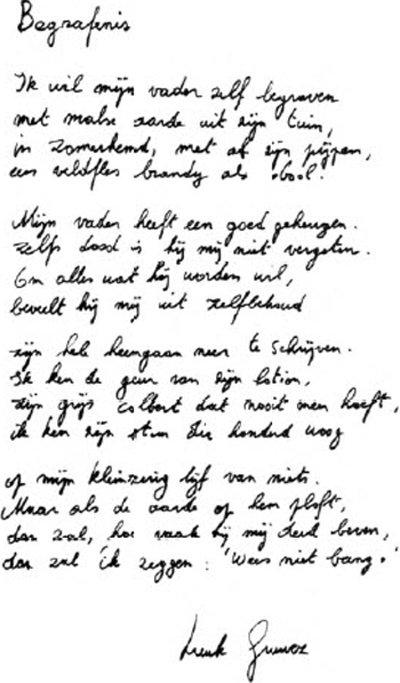 Begrafenis
Ik wil mijn vader zelf begraven
met malse aarde uit zijn tuin,
in zomerhemd, met al zijn pijpen,
een veldfles brandy als obool.
Mijn vader heeft een goed geheugen.
Zelfs dood is hij mij niet vergeten.
Om alles wat hij worden wil,
beveelt hij mij uit zelfbehoud
zijn hele heengaan neer te schrijven.
Ik ken de geur van zijn lotion,
zijn grijs colbert dat nooit meer hoeft,
ik ken zijn stem die honderd woog
op mijn kleinzerig lijf van niets.
Maar als de aarde op hem ploft,
dan zal, hoe vaak hij mij deed beven,
dan zal ik zeggen: 'Wees niet bang.'
Luuk Gruwez